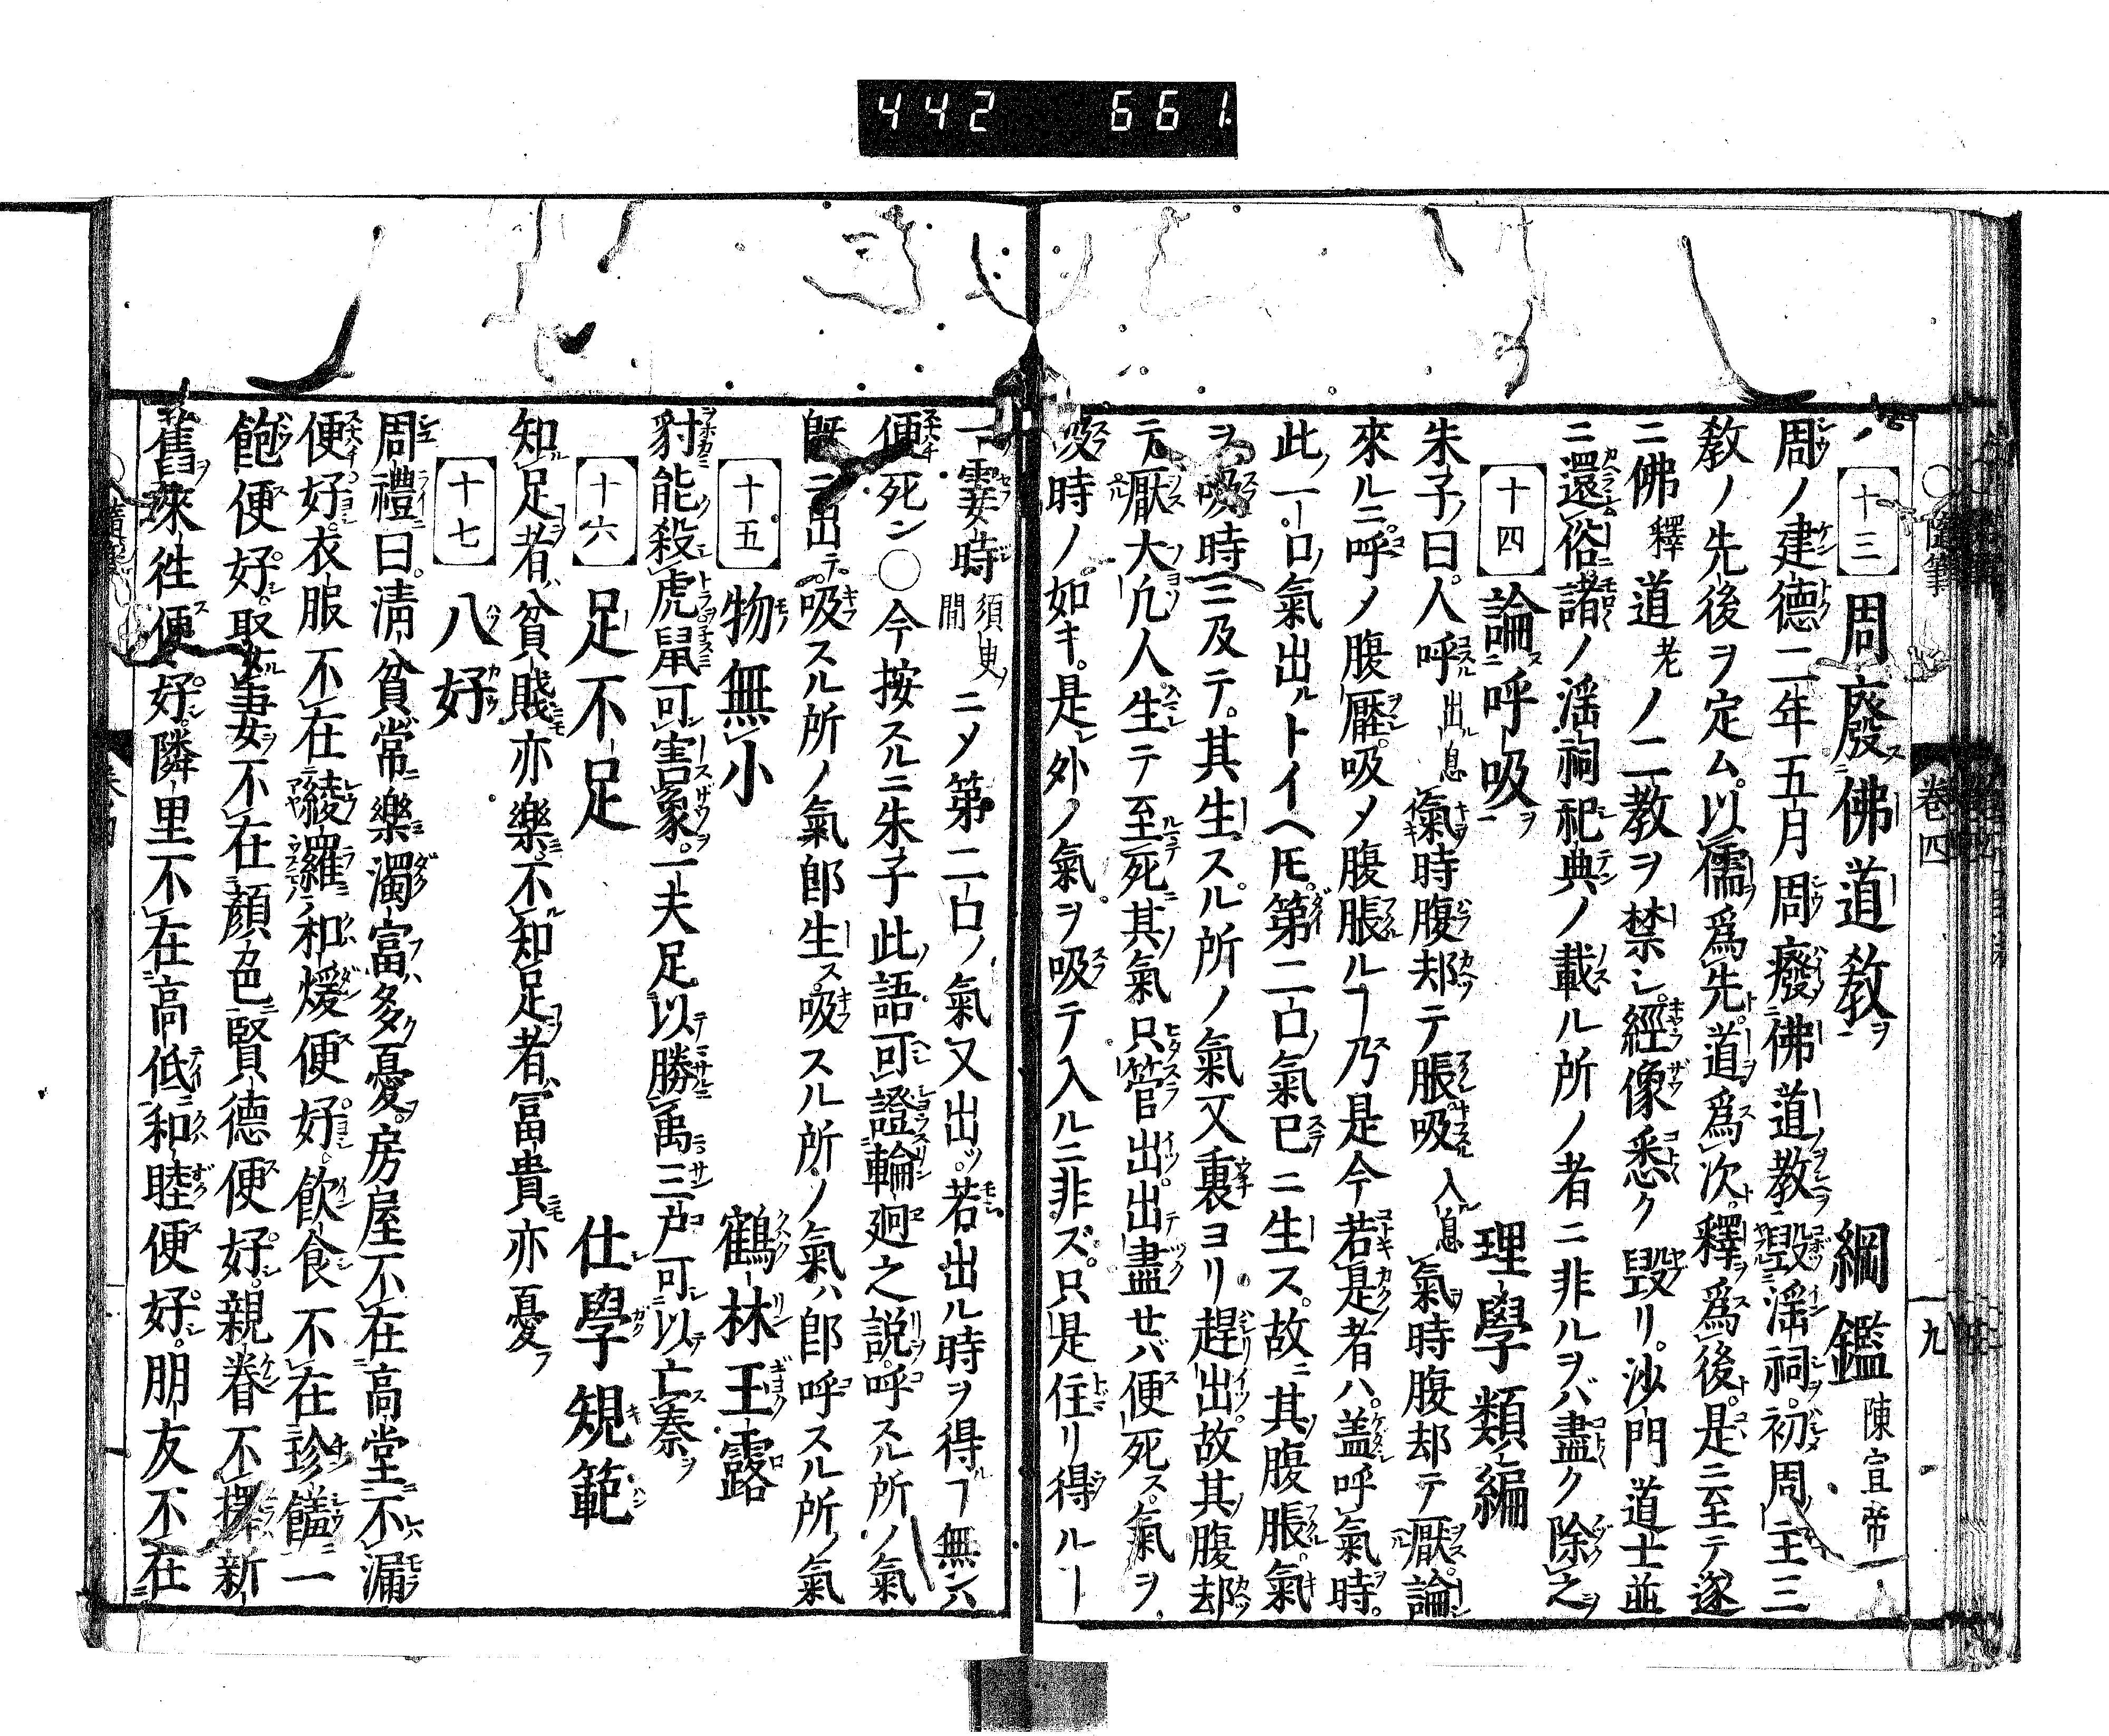 442 661
○隨筆 卷四 九
十三 周廢佛道教 綱鑑 陳宣帝
周ノ建德二年五月周廢佛道教毀淫祠初周主三
教ノ先後ヲ定ム以儒爲先道爲次釋爲後是ニ至テ遂
ニ佛釋道老ノ二教ヲ禁シ經像悉ク毀リ沙門道士並
ニ還俗諸ノ淫祠祀典ノ載ル所ノ者ニ非ルヲバ盡ク除之
十四 論呼吸 理學類編
朱子曰人呼出息氣時腹却テ脹吸入息氣時腹却テ厭論
來ルニ呼ノ腹厭吸メ腹脹ルヿ乃是今若是者ハ蓋呼氣時
此ノ一口氣出ルトイヘ𪜈第二口氣已ニ生ス故ニ其腹脹氣
ヲ吸時ニ及テ其生スル所ノ氣又裏ヨリ趕出故其腹却
テ厭大凡人生テ至死其氣只管出出盡セバ便死ス氣ヲ
吸時ノ如キ是外ノ氣ヲ吸テ入ルニ非ズ只是住リ得ルヿ
一霎時須臾ノ間ニメ第二口ノ氣又出ツ若出ル時ヲ得ルヿ無ハ
便死ン○今按スルニ朱子此語可證輪廻之説呼スル所ノ氣
既ニ出テ吸スル所ノ氣郎生ス吸スル所ノ氣ハ郎呼スル所ノ氣
十五 物無小 鶴林玉露
豺能殺虎鼠可害象一夫足以勝禹三戸可以亡秦
十六 足不足 仕學規範
知足者貧賤亦樂不知足者富貴亦憂フ
十七 八好
周禮曰淸貧常樂濁富多憂房屋不在高堂不漏
便好衣服不在綾羅和煖便好飲食不在珍饈一
飽便好娶妻不在顔色賢德便好親眷不擇新
舊來往便好隣里不在高低和睦便好朋友不在